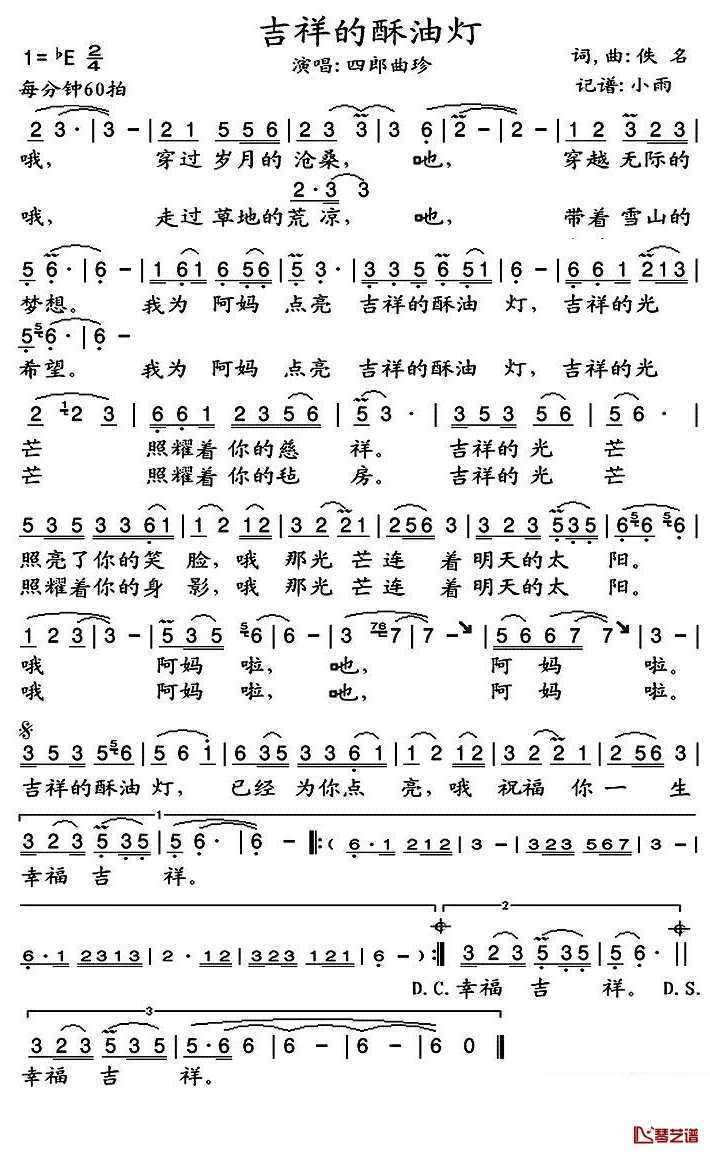 吉祥的酥油灯
1=♭E 2/4
演唱:四郎曲珍
词,曲:佚 名
每分钟60拍
记谱:小雨
2 3 · | 3 - | 2 1 5 5 5 | 2 3 3 | 3 6 | 2 - | 2 - | 1 2 3 2 3 |
哦, 穿过 岁月的 沧桑, 吔, 穿越 无际的
2 · 3 3
哦, 走过 草地的 荒 凉, 吔, 带着 雪山的
5 6 · | 6 - | 1 6 1 6 5 6 | 5 3 · | 3 3 5 6 5 1 | 6 - | 6 6 1 2 1 3 |
梦想。 我为 阿妈 点亮 吉祥的酥油 灯, 吉祥的光
5 5 6 · | 6 -
希望。 我为 阿妈 点亮 吉祥的酥油 灯, 吉祥的光
2 1 2 3 | 6 6 1 2 3 5 6 | 5 3 · | 3 5 3 5 | 5 6 · |
芒 照耀着 你的慈 祥。 吉祥的 光 芒
芒 照耀着 你的毡 房。 吉祥的 光 芒
5 3 5 3 3 6 1 | 1 2 1 2 | 3 2 2 1 | 2 5 6 3 | 3 2 3 5 3 5 | 6 5 6 5 6 |
照亮了你的笑 脸, 哦 那光 芒连 着 明天的太 阳。
照耀着你的身 影, 哦 那光 芒连 着 明天的太 阳。
1 2 3 | 3 - | 5 3 5 5 6 | 6 - | 3 7 6 7 | 7 - | 5 6 6 7 7 | 3 - |
哦 阿妈 啦, 吔, 阿 妈 啦。
哦 阿妈 啦, 吔, 阿 妈 啦。
3 5 3 5 5 6 | 5 6 1 | 6 3 5 | 3 3 6 1 | 1 2 1 2 | 3 2 2 1 | 2 5 6 3 |
吉祥的酥油 灯, 已经 为你点 亮, 哦 祝福 你 一 生
1
3 2 3 5 3 5 | 5 6 · | 6 - ‖: ( 6 · 1 2 1 2 | 3 - | 3 2 3 5 6 7 | 3 - |
幸福 吉 祥。
2
6 · 1 2 3 1 3 | 2 · 1 2 | 3 2 3 1 2 1 | 6 - ) :‖ 3 2 3 5 3 5 | 5 6 · ‖
D.C. 幸福 吉 祥。 D.S.
3
3 2 3 5 3 5 | 5 · 6 6 | 6 - | 6 - | 6 0 ‖
幸福 吉 祥。
琴艺谱